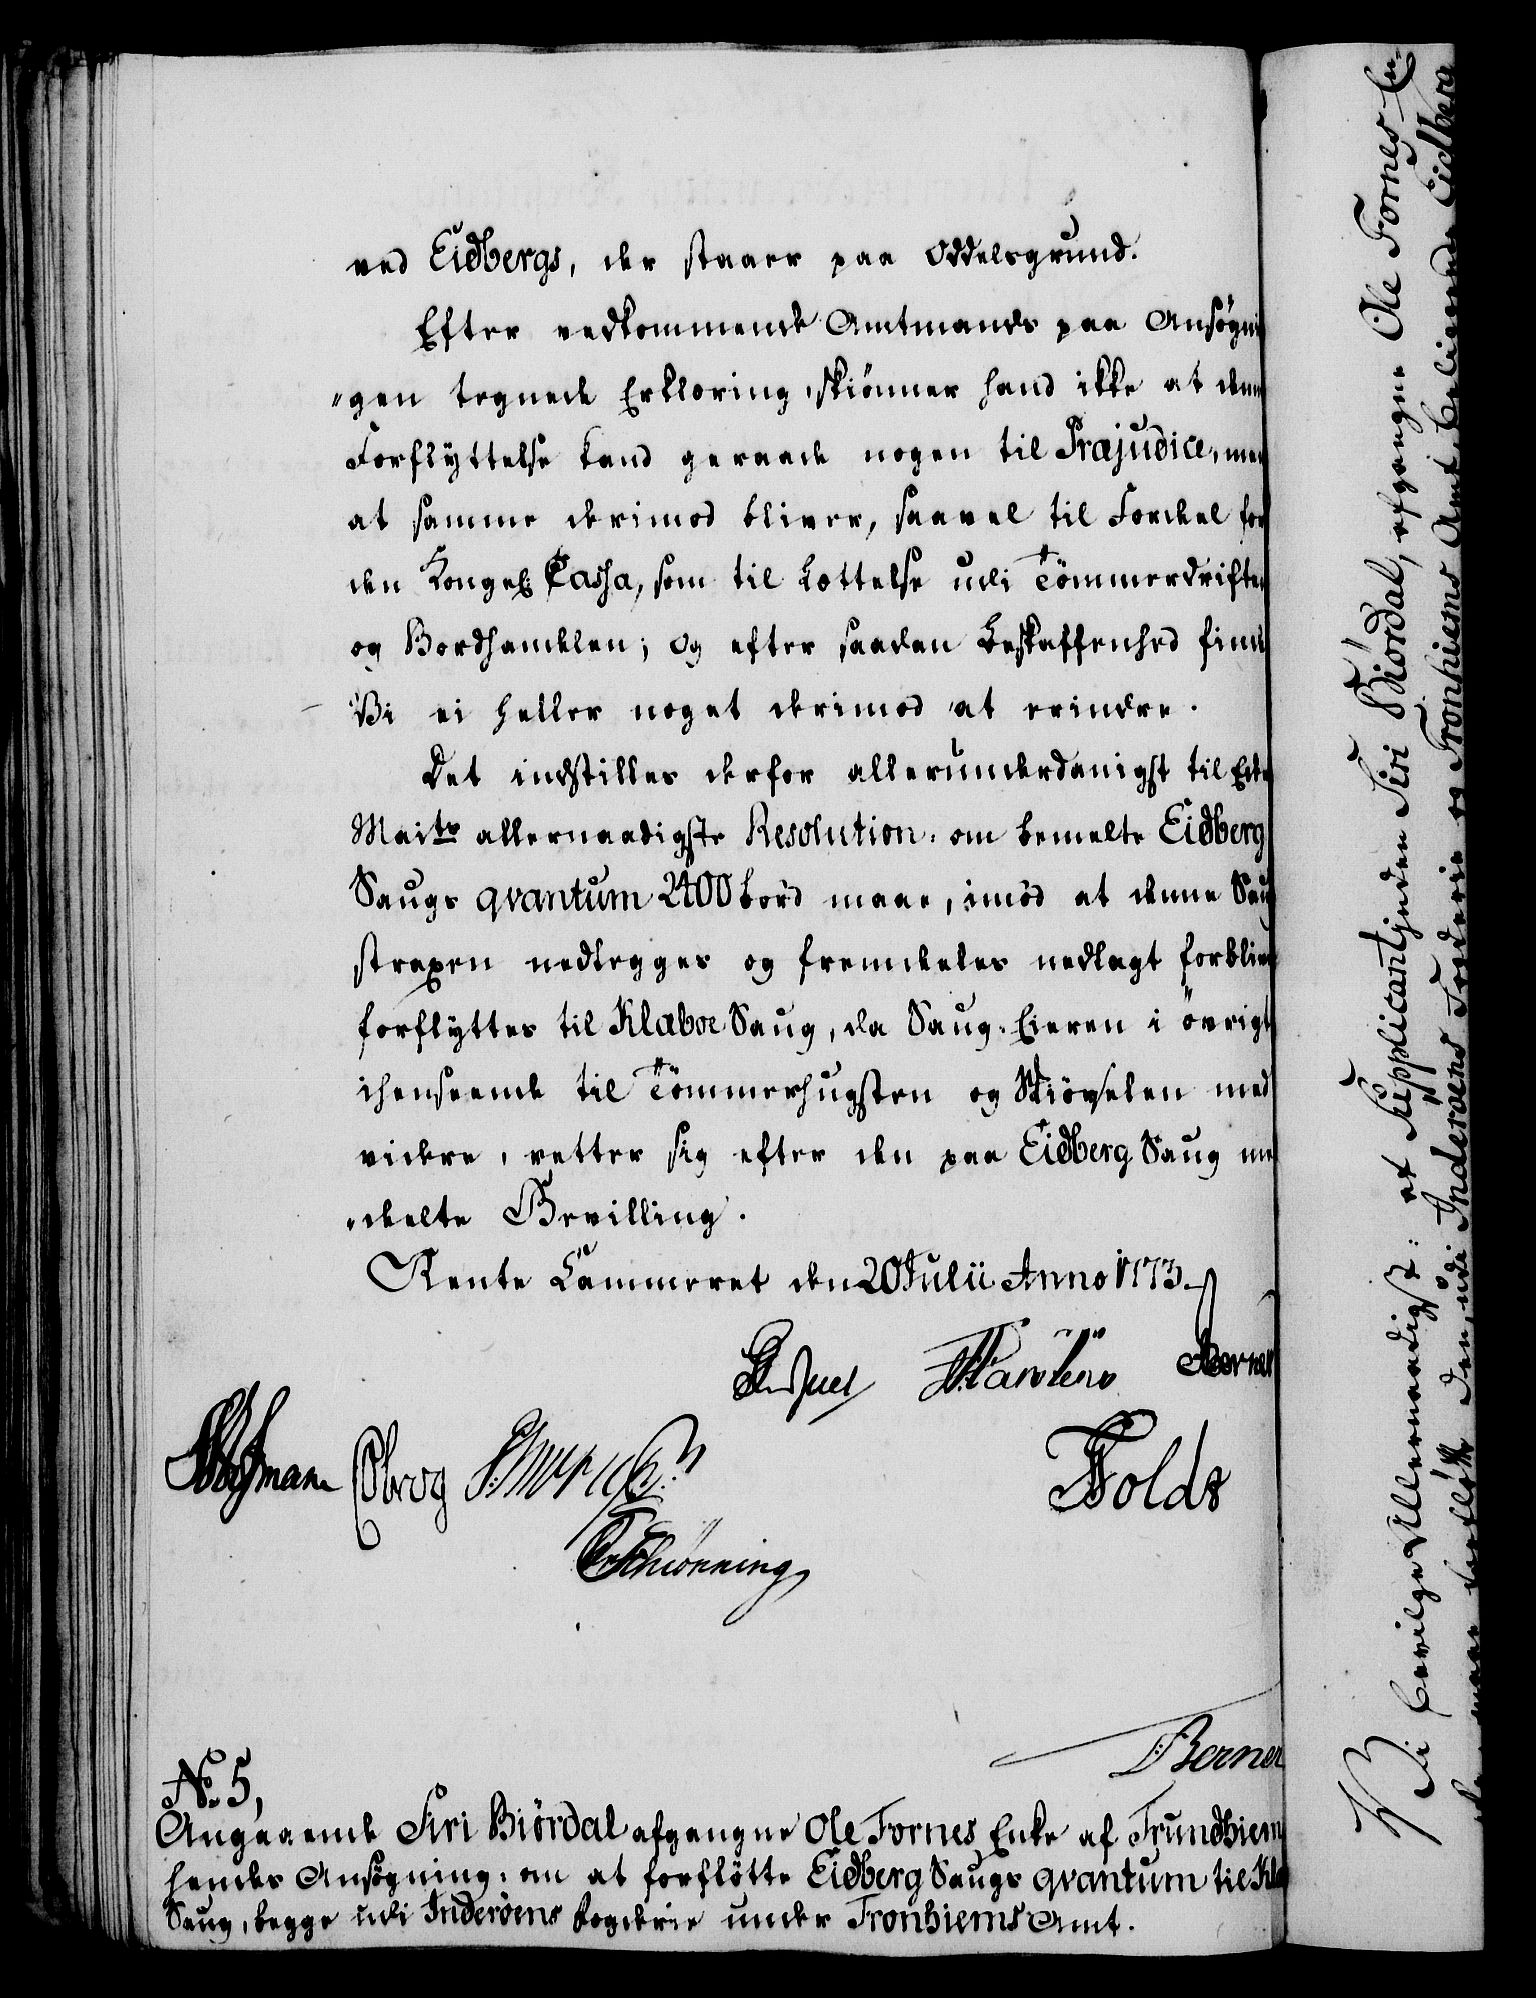 ved Eidbergs, der staaer paa Oddelsgrund.
Efter vedkommende Amtmands paa Ansøgni
"gen tegnede Erklæring, skiønner hand ikke at denne
Forflyttelse kand geraade nogen til Præjudice, men
at samme derimod bliver, saavel til Fordel for
den Kongel: Cassa, som til Lættelse udi Tömmerdriften
og Bordhandelen; og efter saadan Beskaffenhed finde
Vi ei heller noget derimod at erindre.
Det indstilles derfor allerunderdanigst til Eders
Maits allernaadigste Resolution: om bemelte Eidberg
Saugs qvantum 2400 bord maae, imod at denne Saug
straxen nedlegges og fremdeles nedlagt forbliver
forflyttes til Klaboe Saug, da Saug-Eieren i øvrigt
ihenseende til Tömmerhugsten og Skiøvselen med
videre, retter sig efter den paa Eidberg Saug med
"deelte Bevilling.
Rente Cammeret den 20 Julii Anno 1773.
Berner
Holds
Schiønning
Berner
No. 5,
Angaaende Siri Biördal afgangne Ole Fornes Enke af Trundhiem
hendes Ansøgning, om at forflötte Eidberg Saugs qvantum til Kla
Saug, begge udi Inderöens Fogderie under Tronhiems Amt.
Vi bevilge Allernaadigst: at Supplicantinden Siri Biördal, afgangne Ole Fornes En-
maae forflötte den, udi Inderöens Fogderie og Tronhiems Amt beliggende Eidberg